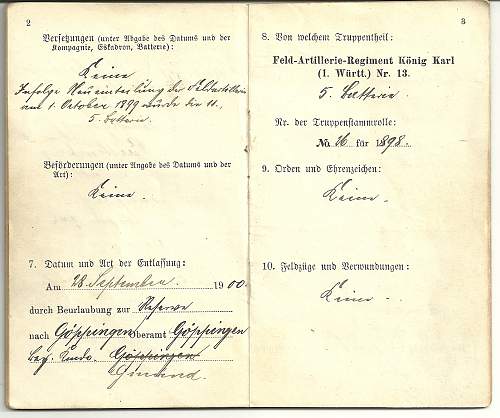 2
Versetzungen (unter Abgabe des Datums und der
Kompagnie, Eskadron, Batterie):
Keine
Infolge Neueinteilung der Feldartillerie
am 1. October 1899 wurde die 11.
5. Batterie.
Beförderungen (unter Angabe des Datums und der
Art):
Keine.
7. Datum und Art der Entlassung:
Am 28. September. 1900.
durch Beurlaubung zur Reserve
nach Göppingen Oberamt Göppingen
Bez. Kndo. Göppingen
Gmünd.
3
8. Von welchem Truppentheil:
Feld-Artillerie-Regiment König Karl
(1. Württ.) Nr. 13.
5. Batterie.
Nr. der Truppenstammrolle:
No 16 für 1898.
9. Orden und Ehrenzeichen:
Keine.
10. Feldzüge und Verwundungen:
Keine.